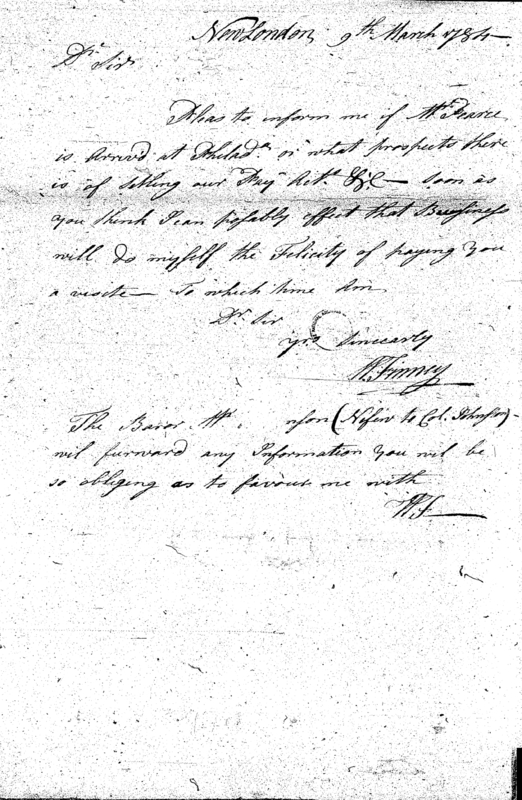 New London 9th March 1784
Dr Sir
Pleas to inform me if Mr Pearce
is Arriv'd at Philada. or what prospects there
is of Setling our Pay Acts. &c — Soon as
you think I can posably effect that Buisiness
will do myself the Felicity of paying you
a visite — To which time Am
Dr Sir
yrs. Sincearly
Wm Finney
The Baror Mr nson (Nefiw to Col. Johnson) -
wil furward any Information you wil be
so obliging as to favour me with
WF